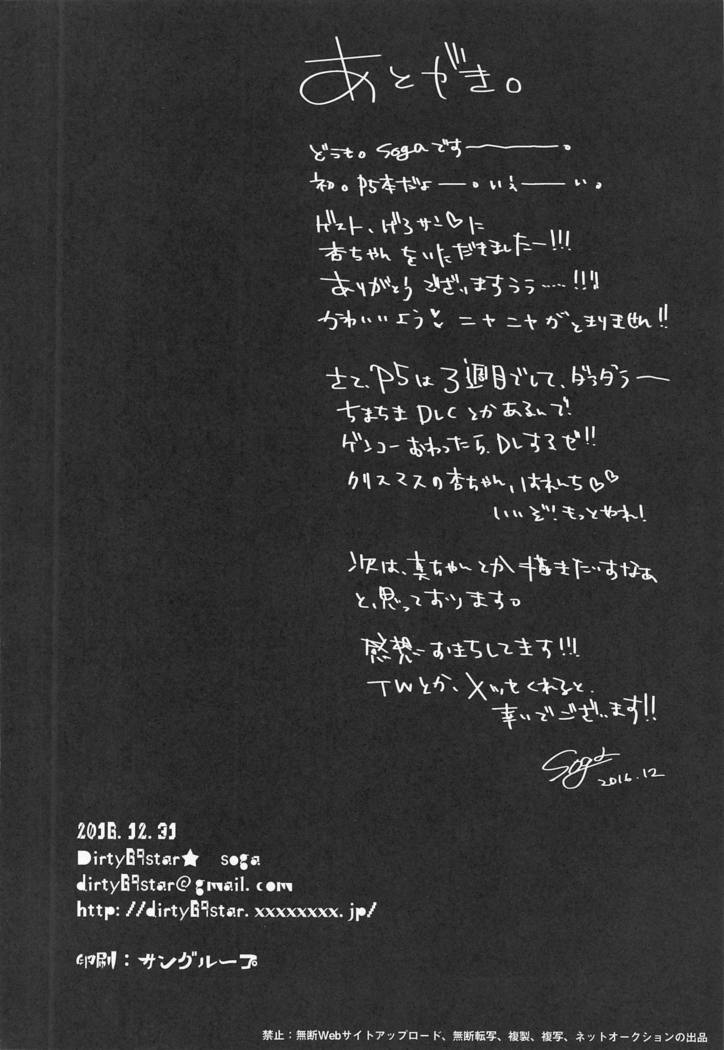 あとがき。
どうも。sogaです――――。
初。P5本だよ――。いぇ――い。
ゲスト、げろサン♡に
杏ちゃんをいただきましたー!!!
ありがとうございますうう……!!!
かわいいよう♥ニヤニヤがとまりません!!
さて、P5は3週目でして、ダラダラ――
ちまちまDLCとかあるんで!
ゲンコーおわったら、DLするぜ!!
クリスマスの杏ちゃん、はれんち♡♡
いいぞ!もっとやれ!
次は、真ちゃんとか描きたいすなあ
と、思っております。
感想おまちしてます!!!
TWとか、メッセくれると、
幸いでございます!!
Soga
2016.12
2016.12.31
Dirty69star★ soga
dirty69star@gmail.com
http://dirty69star.xxxxxxxx.jp/
印刷:サングループ
禁止:無断Webサイトアップロード、無断転写、複製、複写、ネットオークションの出品